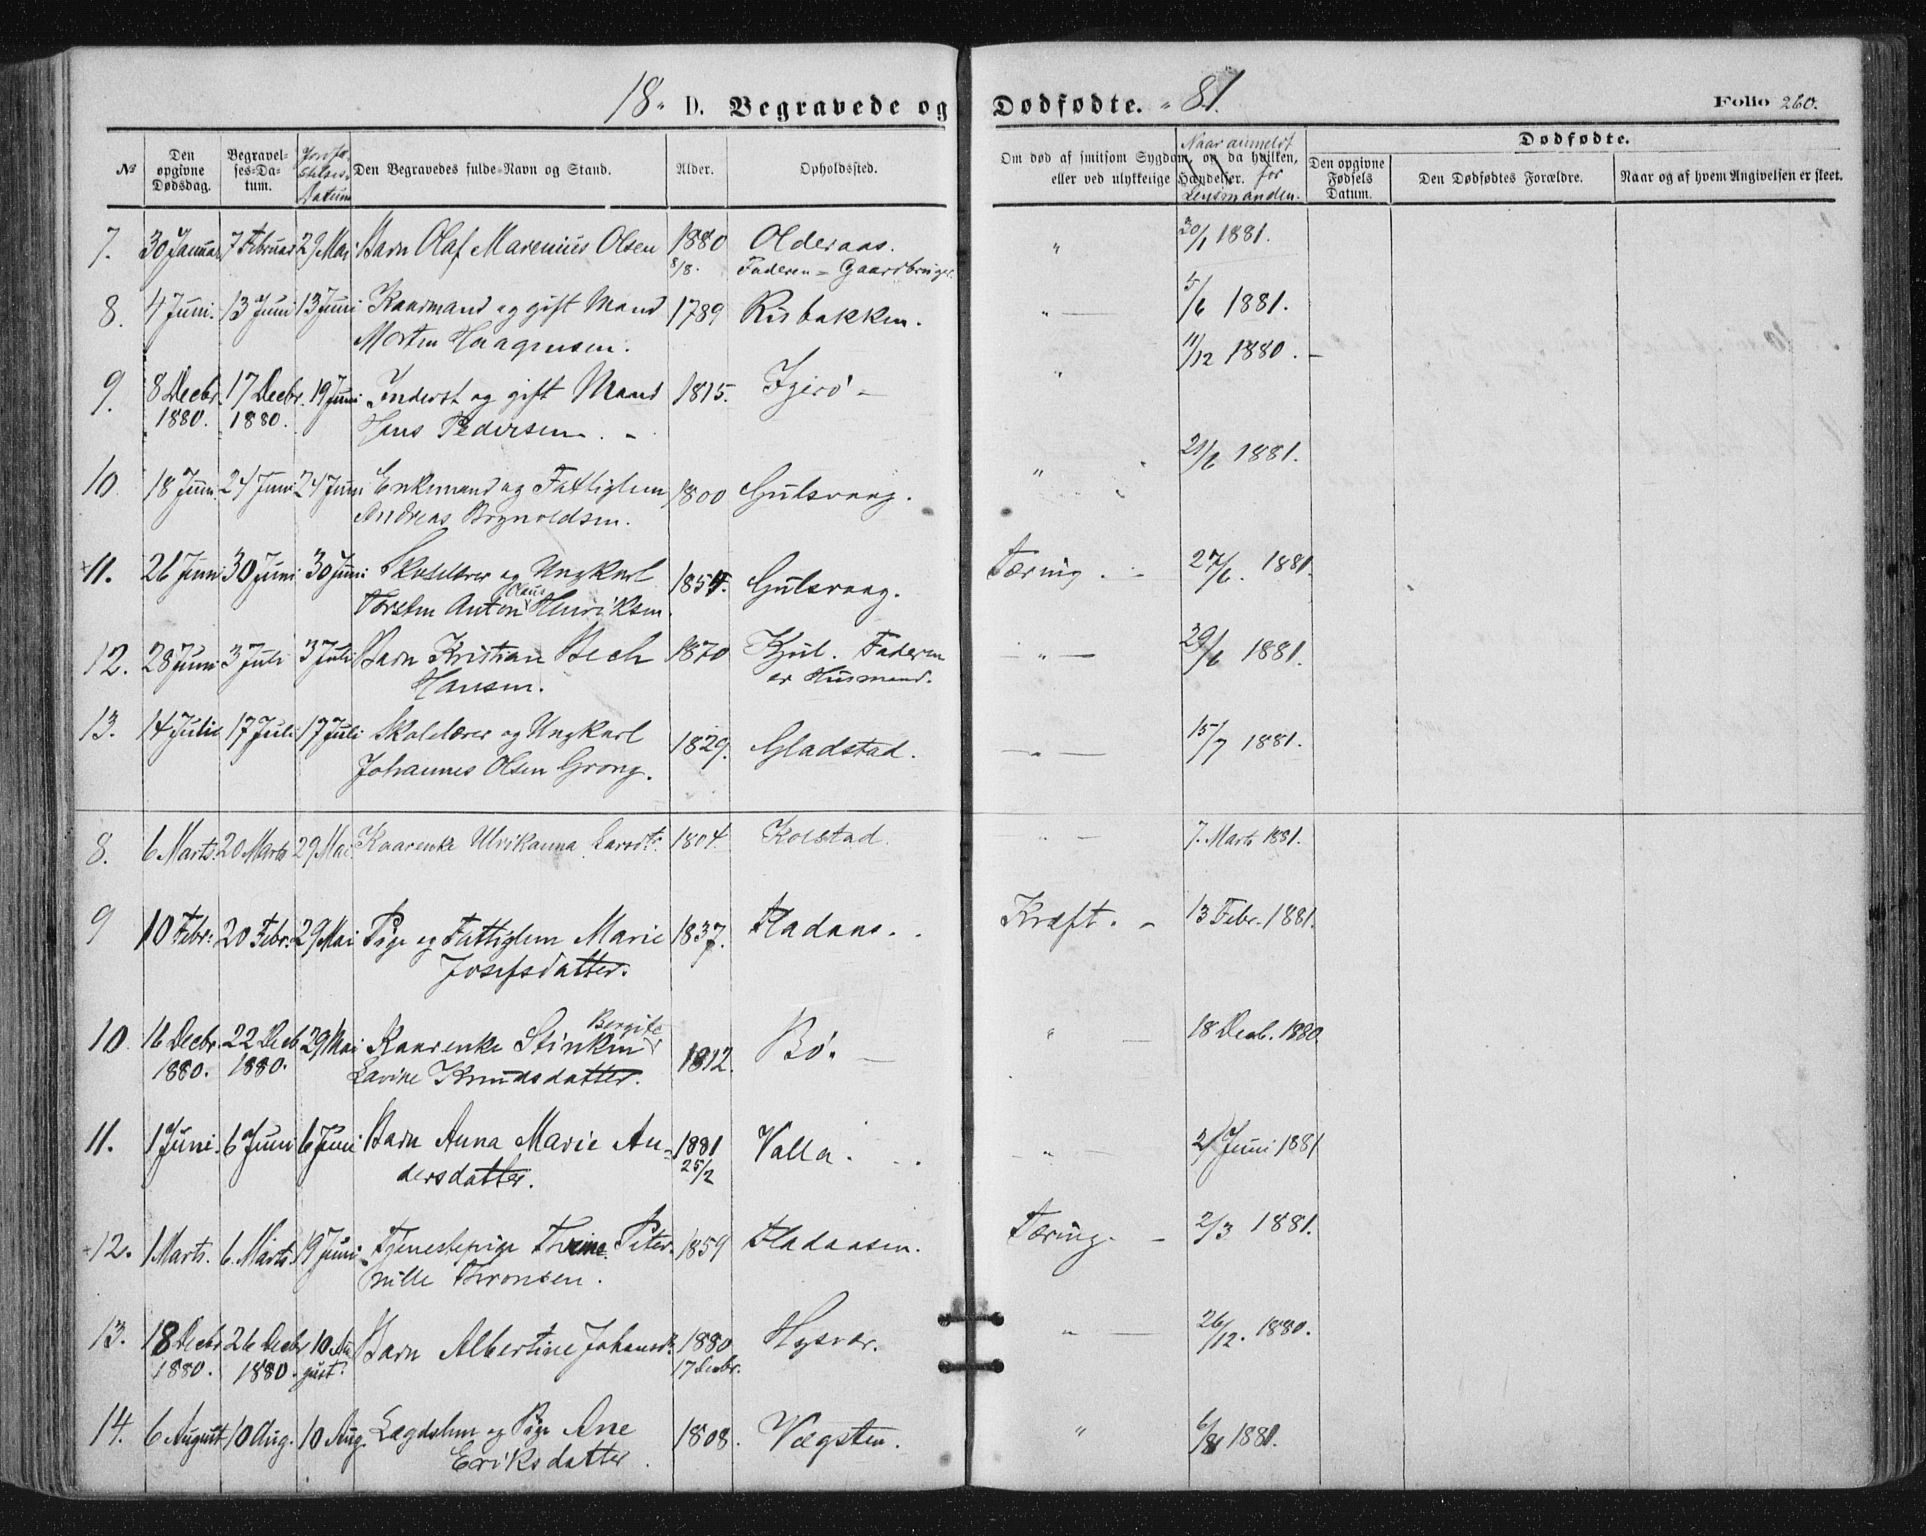 18 D. Begravede og Dødfødte. 81. Folio 260.
№ Den opgivne Dødsdag. Begravelses-Datum. Jordfæstelses-Datum Den Begravedes fulde Navn og Stand. Alder. Opholdssted. Om død af smitsom Sygdom, og da hvilken, eller ved ulykkelige Hændelser. Naar anmeldt for Lensmanden. Dødfødte. Den opgivne Fødsels Datum. Den Dødfødtes Forældre. Naar og af hvem Angivelsen er skeet.
7. 30 Januar 7 Februar 29 Mai Barn Olaf Marenius Olsen 1880 Olderaas. " 30/1 1881.
8/8. Faderen = Gaardbruger.
8. 4 Juni. 13 Juni 13 Juni Kaarmand og gift Mand 1789 Risbakken. " 5/6 1881.
Morten Haagensen.
9. 8 Decbr. 17 Decbr. 19 Juni Inderst og gift Mand 1815. Igerø " 11/12 1880.
1880. 1880. Hans Pedersen.
10 18 Juni. 24 Juni 24 Juni Enkemand og Fattiglem 1800 Gulsvaag. " 21/6 1881.
Andreas Brynoldsen.
+11. 26 Juni 30 Juni 30 Juni Skolelærer og Ungkarl 1854. Gulsvaag. Tæring. 27/6. 1881.
Torsten Anton Claus Henriksen.
12. 28 Juni 3 Juli 3 Juli Barn Kristian Bech 1870 Kjul. Faderen " 29/6 1881.
Hansen. er Husmand.
13. 14 Juli 17 Juli 17 Juli Skolelærer og Ungkarl 1829. Gladstad. " 15/7 1881.
Johannes Olsen Grong.
8. 6 Marts. 20 Marts 29 Mai Kaarenke Ulrikanna Larsdtr. 1804. Kolstad. " 7. Marts 1881.
9 10 Febr: 20 Febr: 29 Mai Pige og Fattiglem Marie 1837. Fladaas. Kræft. 13 Febr. 1881.
Josefsdatter.
10 16 Decbr. 22 Decb 29 Mai Kaarenke Stinken Bergite 1812. Bø. " 18 Decb. 1880
1880. 1880. Lavine Knudsdatter.
11. 1 Juni. 6 Juni 6 Juni Barn Anna Marie An- 1881 Valla. " 2/ Juni 1881
dersdatter. 25/2
+12. 1 Marts. 6 Marts 19 Juni Tjenestepige Trine Peter- 1859 Fladaasen. Tæring. 2/3 1881.
nille Thronsen.
13. 18 Decbr 26 Decbr 10 Au- Barn Albertine Johansdr. 1880 Hysvær. " 26/12. 1880.
1880. 1880. gust. 17 Decbr.
14. 6 August 10 Aug. 10 Aug. Lægdslem og Pige Ane 1808. Vægsten. " 6/8 1881.
Eriksdatter.